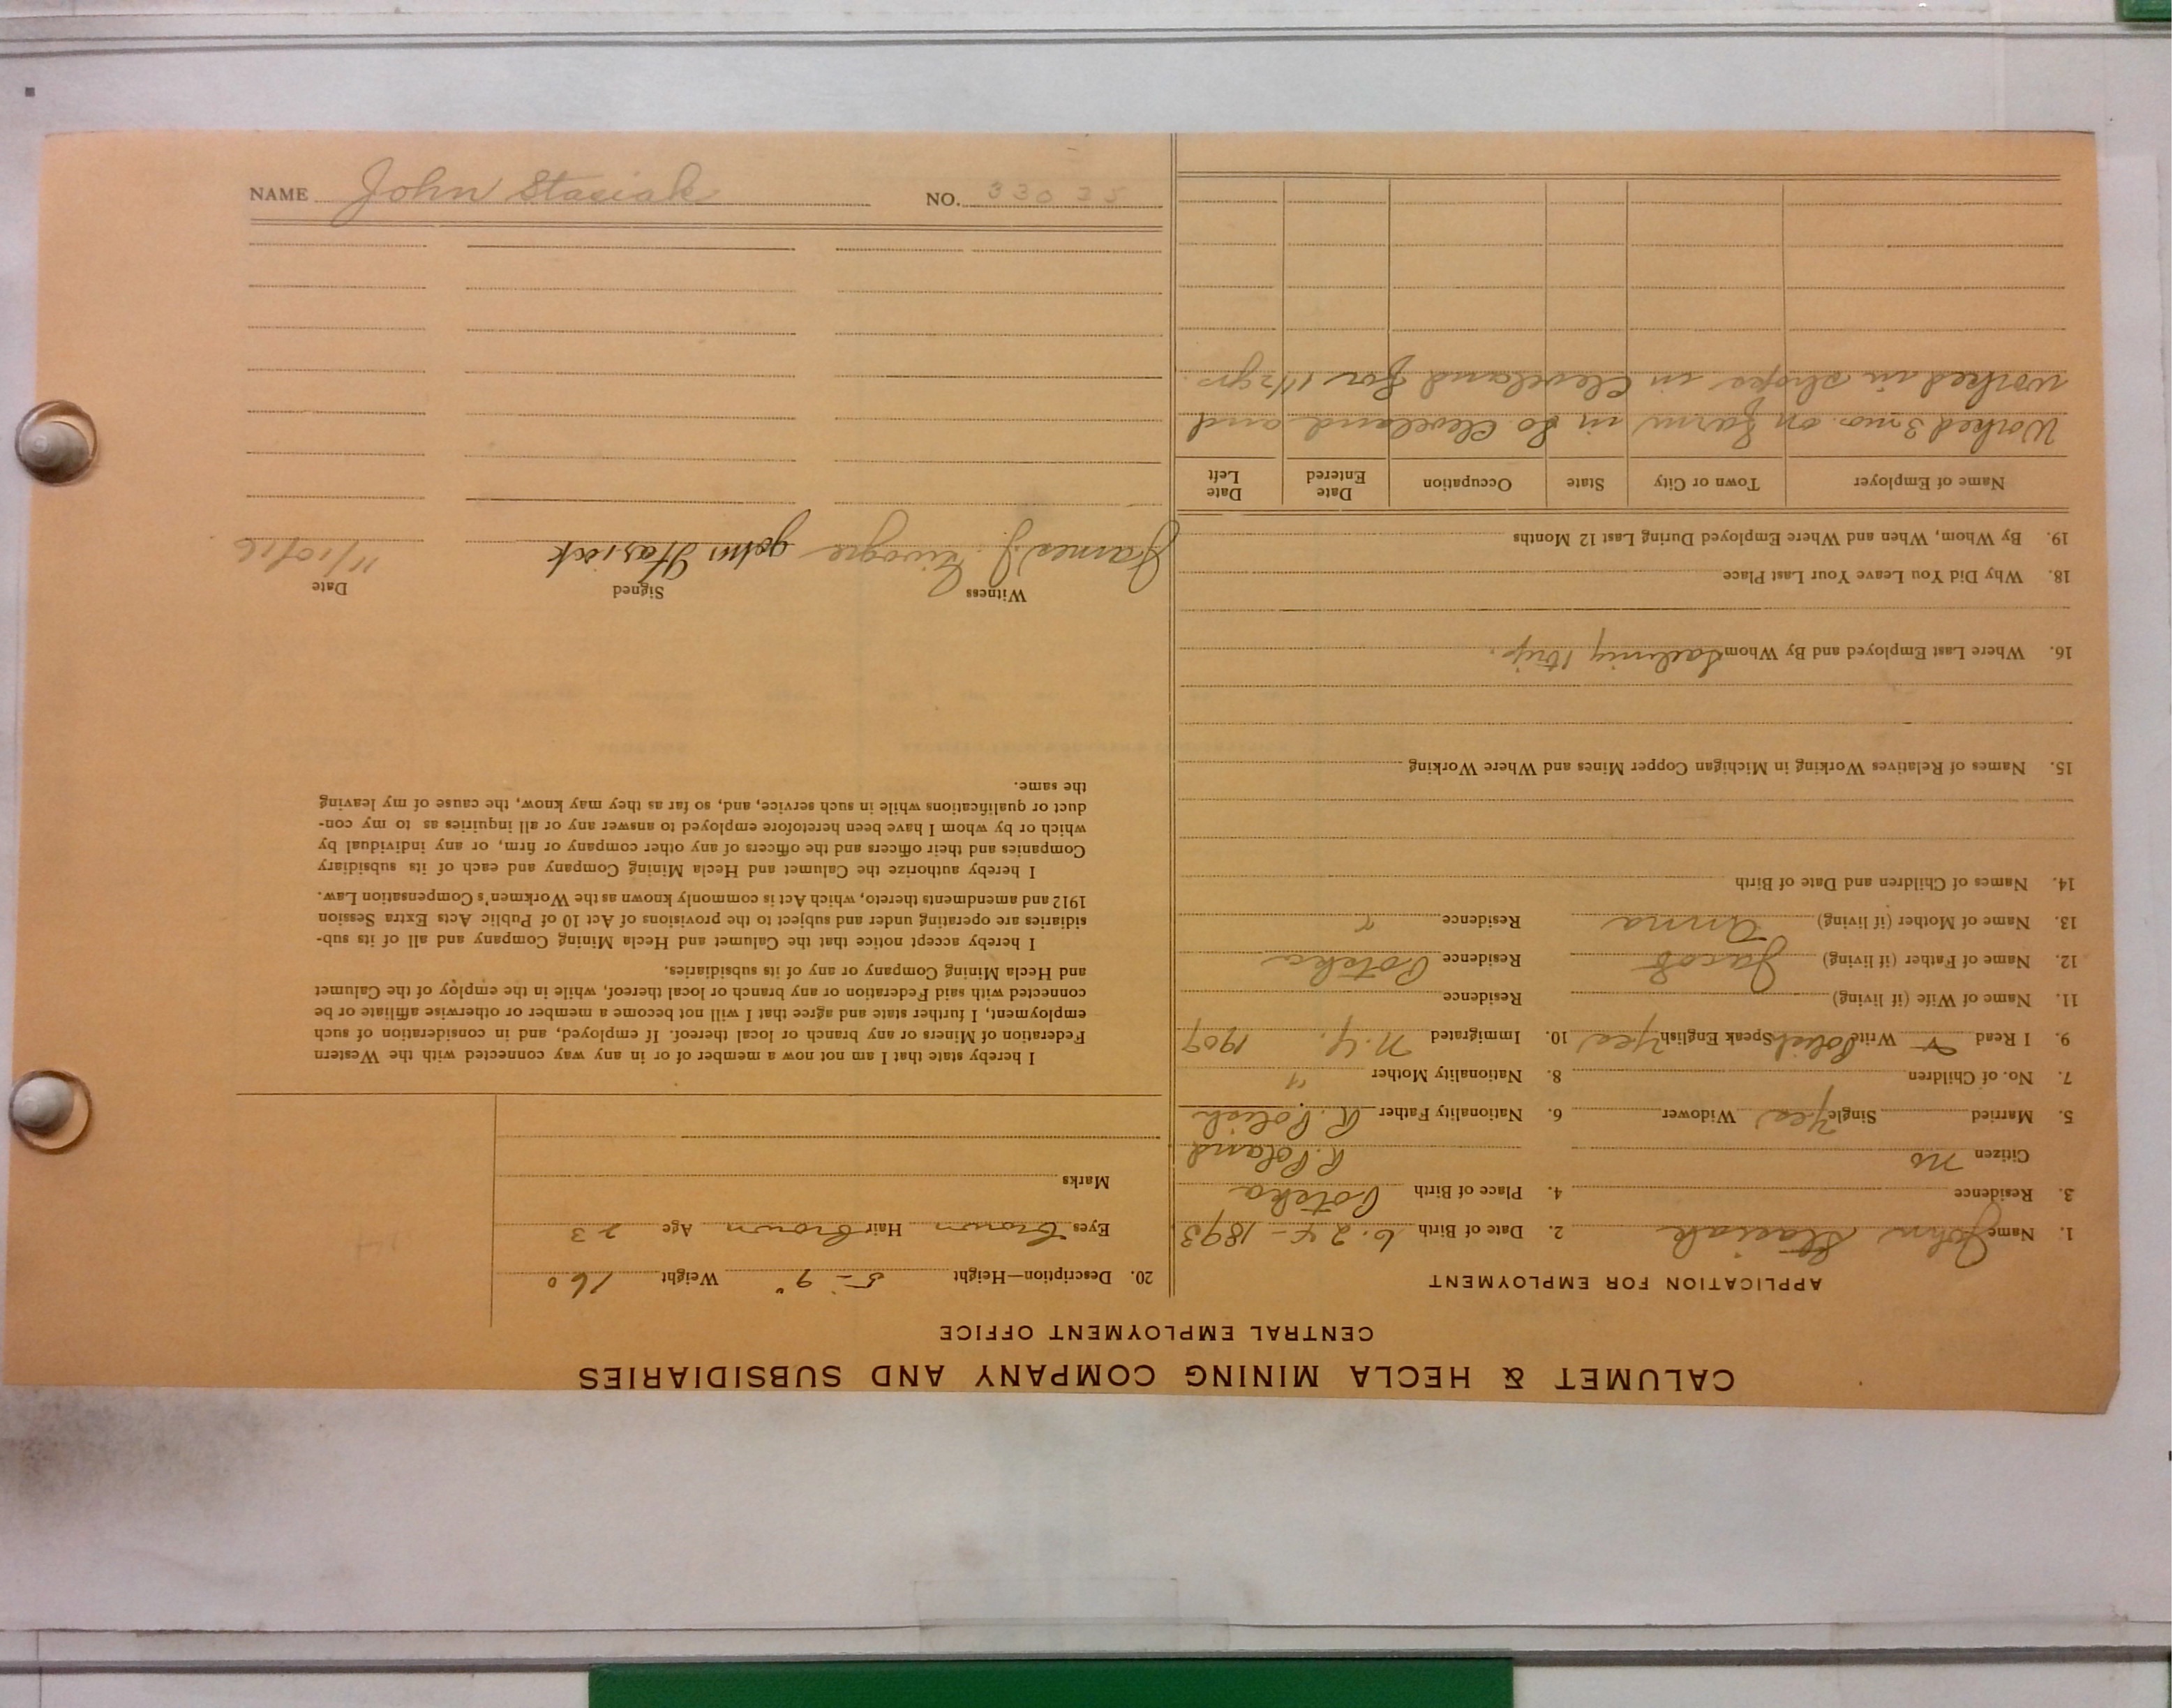 CALUMET & HECLA MINING COMPANY AND SUBSIDIARIES
CENTRAL EMPLOYMENT OFFICE
APPLICATION FOR EMPLOYMENT
1. Name John Stasiak 2. Date of Birth 6. 24 - 1893
3. Residence 4. Place of Birth
Citizen no R. Poland
5. Married Single Yes Widower 6. Nationality Father R. Polish
7. No. of Children 8. Nationality Mother "
9. I Read & Write Polish Speak English Yes 10. Immigrated N.Y. 1909
11. Name of Wife (if living) Residence
12. Name of Father (if living) Jacob Residence
13. Name of Mother (if living) Anna Residence "
14. Names of Children and Date of Birth
15. Names of Relatives Working in Michigan Copper Mines and Where Working
16. Where Last Employed and By Whom Sailing 1 trip.
18. Why Did You Leave Your Last Place
19. By Whom, When and Where Employed During Last 12 Months
Name of Employer Town or City State Occupation Date Entered Date Left
Worked 3 mo. on farm in So. Cleveland and
worked in shops in Cleveland for 1 1/2 yrs.
20. Description—Height 5-9" Weight 160
Eyes Brown Hair Brown Age 23
Marks
I hereby state that I am not now a member of or in any way connected with the Western
Federation of Miners or any branch or local thereof. If employed, and in consideration of such
employment, I further state and agree that I will not become a member or otherwise affiliate or be
connected with said Federation or any branch or local thereof, while in the employ of the Calumet
and Hecla Mining Company or any of its subsidiaries.
I hereby accept notice that the Calumet and Hecla Mining Company and all of its sub-
sidiaries are operating under and subject to the provisions of Act 10 of Public Acts Extra Session
1912 and amendments thereto, which Act is commonly known as the Workmen's Compensation Law.
I hereby authorize the Calumet and Hecla Mining Company and each of its subsidiary
Companies and their officers and the officers of any other company or firm, or any individual by
which or by whom I have been heretofore employed to answer any or all inquiries as to my con-
duct or qualifications while in such service, and, so far as they may know, the cause of my leaving
the same.
Witness Signed Date
James J. john Stasiak 11/10/16
NAME John Stasiak NO. 33035